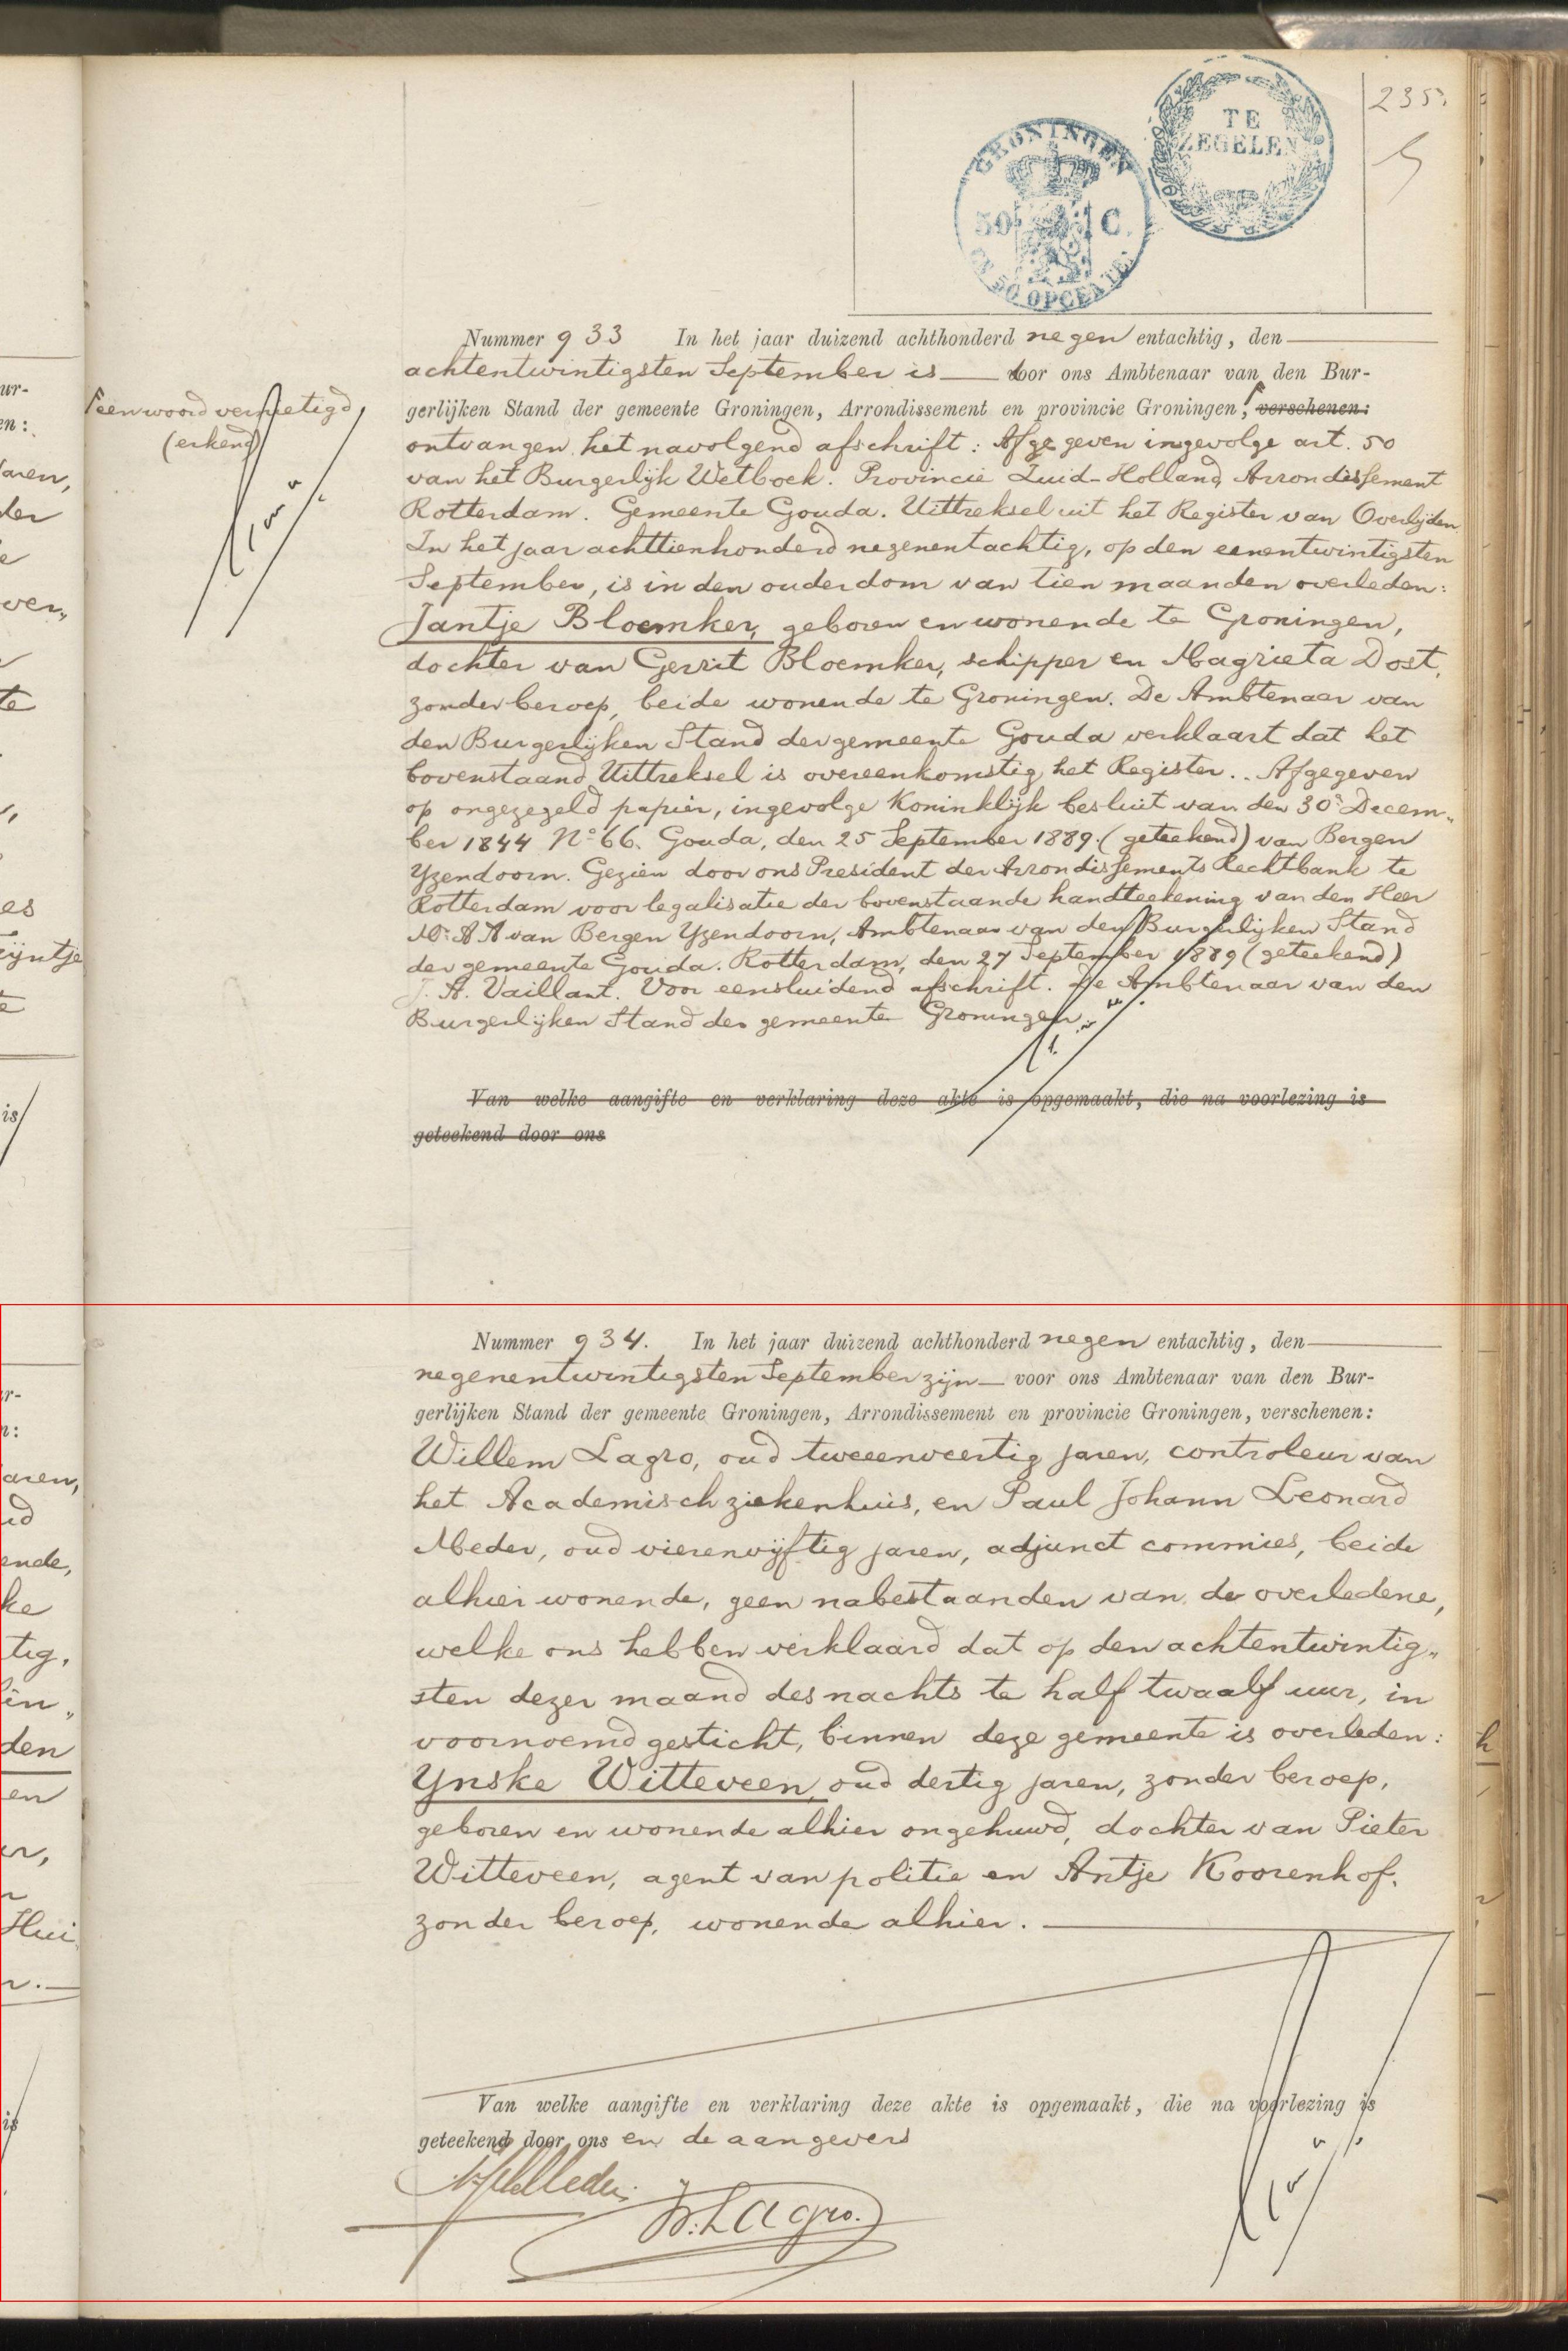 235
TE
ZEGELEN
GRONINGEN
50 C.
EN 50 OPCENTEN
Nummer 933 In het jaar duizend achthonderd negen entachtig, den
achtentwintigsten September is door ons Ambtenaar van den Bur-
gerlijken Stand der gemeente Groningen, Arrondissement en provincie Groningen, verschenen:
een woord vernietigd
(erkend)
ontvangen het navolgend afschrift: Afgegeven ingevolge art. 50
van het Burgerlijk Wetboek. Provincie Zuid-Holland, Arrondissement
Rotterdam. Gemeente Gouda. Uittreksel uit het Register van Overlijden
In het jaar achttienhonderd negenentachtig, op den eenentwintigsten
September, is in den ouderdom van tien maanden overleden:
Jantje Bloemker, geboren en wonende te Groningen,
dochter van Gerrit Bloemker, schipper en Magrieta Dost,
zonder beroep, beide wonende te Groningen. De Ambtenaar van
den Burgerlijken Stand der gemeente Gouda verklaart dat het
bovenstaand Uittreksel is overeenkomstig het Register.. Afgegeven
op ongezegeld papier, ingevolge Koninklijk besluit van den 30n Decem„
ber 1844 No 66. Gouda, den 25 September 1889. (geteekend) van Bergen
Yzendoorn. Gezien door ons President der Arrondissements Rechtbank te
Rotterdam voor legalisatie der bovenstaande handteekening van den Heer
Mr. A A van Bergen Yzendoorn, Ambtenaar van den Burgerlijken Stand
der gemeente Gouda. Rotterdam, den 27 September 1889 (geteekend)
J. A. Vaillant. Voor eensluidend afschrift. De Ambtenaar van den
Burgerlijken Stand der gemeente Groningen.
Van welke aangifte en verklaring deze akte is opgemaakt, die na voorlezing is
geteekend door ons
Nummer 934. In het jaar duizend achthonderd negen entachtig, den
negenentwintigsten September zijn voor ons Ambtenaar van den Bur-
gerlijken Stand der gemeente Groningen, Arrondissement en provincie Groningen, verschenen:
Willem Lagro, oud tweeenveertig jaren, controleur van
het Academisch ziekenhuis, en Paul Johann Leonard
Meder, oud vierenvijftig jaren, adjunct commies, beide
alhier wonende, geen nabestaanden van de overledene,
welke ons hebben verklaard dat op den achtentwintig„
sten dezer maand des nachts te half twaalf uur, in
voornoemd gesticht, binnen deze gemeente is overleden:
Ynske Witteveen, oud dertig jaren, zonder beroep,
geboren en wonende alhier ongehuwd, dochter van Pieter
Witteveen, agent van politie en Antje Koorenhof,
zonder beroep, wonende alhier.
Van welke aangifte en verklaring deze akte is opgemaakt, die na voorlezing is
geteekend door ons en de aangevers
W. Lagro.